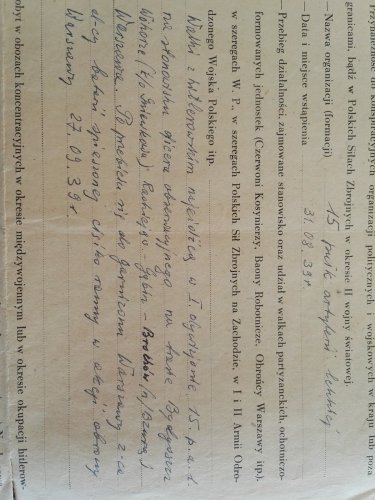 Przynależność do konspiracyjnych organizacji politycznych i wojskowych w kraju lub poza
granicami, bądź w Polskich Siłach Zbrojnych w okresie II wojny światowej.
— Nazwa organizacji (formacji) 15 pułk artylerii lekkiej
— Data i miejsce wstąpienia 31.08.39r.
— Przebieg działalności, zajmowane stanowisko oraz udział w walkach partyzanckich, ochotniczo-
formowanych jednostek (Czerwoni Kosynierzy, Baony Robotnicze, Obrońcy Warszawy itp.),
w szeregach W. P., w szeregach Polskich Sił Zbrojnych na Zachodzie, w I i II Armii Odro-
dzonego Wojska Polskiego itp.
Walki z hitlerowskim najeźdźcą w I dywizjonie 15 p.a.l.
na stanowisku oficera obserwacyjnego na trasie Bydgoszcz
Radziejów - Gąbin - Brochów n/Bzurą)
Warszawa. Po przebiciu się do garnizonu Warszawy z-ca
d-cy baterii ciężko ranny w akcji obrony
Warszawy 27.09.39r.
obyt w obozach koncentracyjnych w okresie międzywojennym lub w okresie okupacji hitlerow-